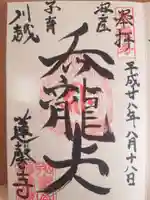 奉拝
平成廿八年八月十八日
安産
呑龍大
子育
川越
蓮馨寺